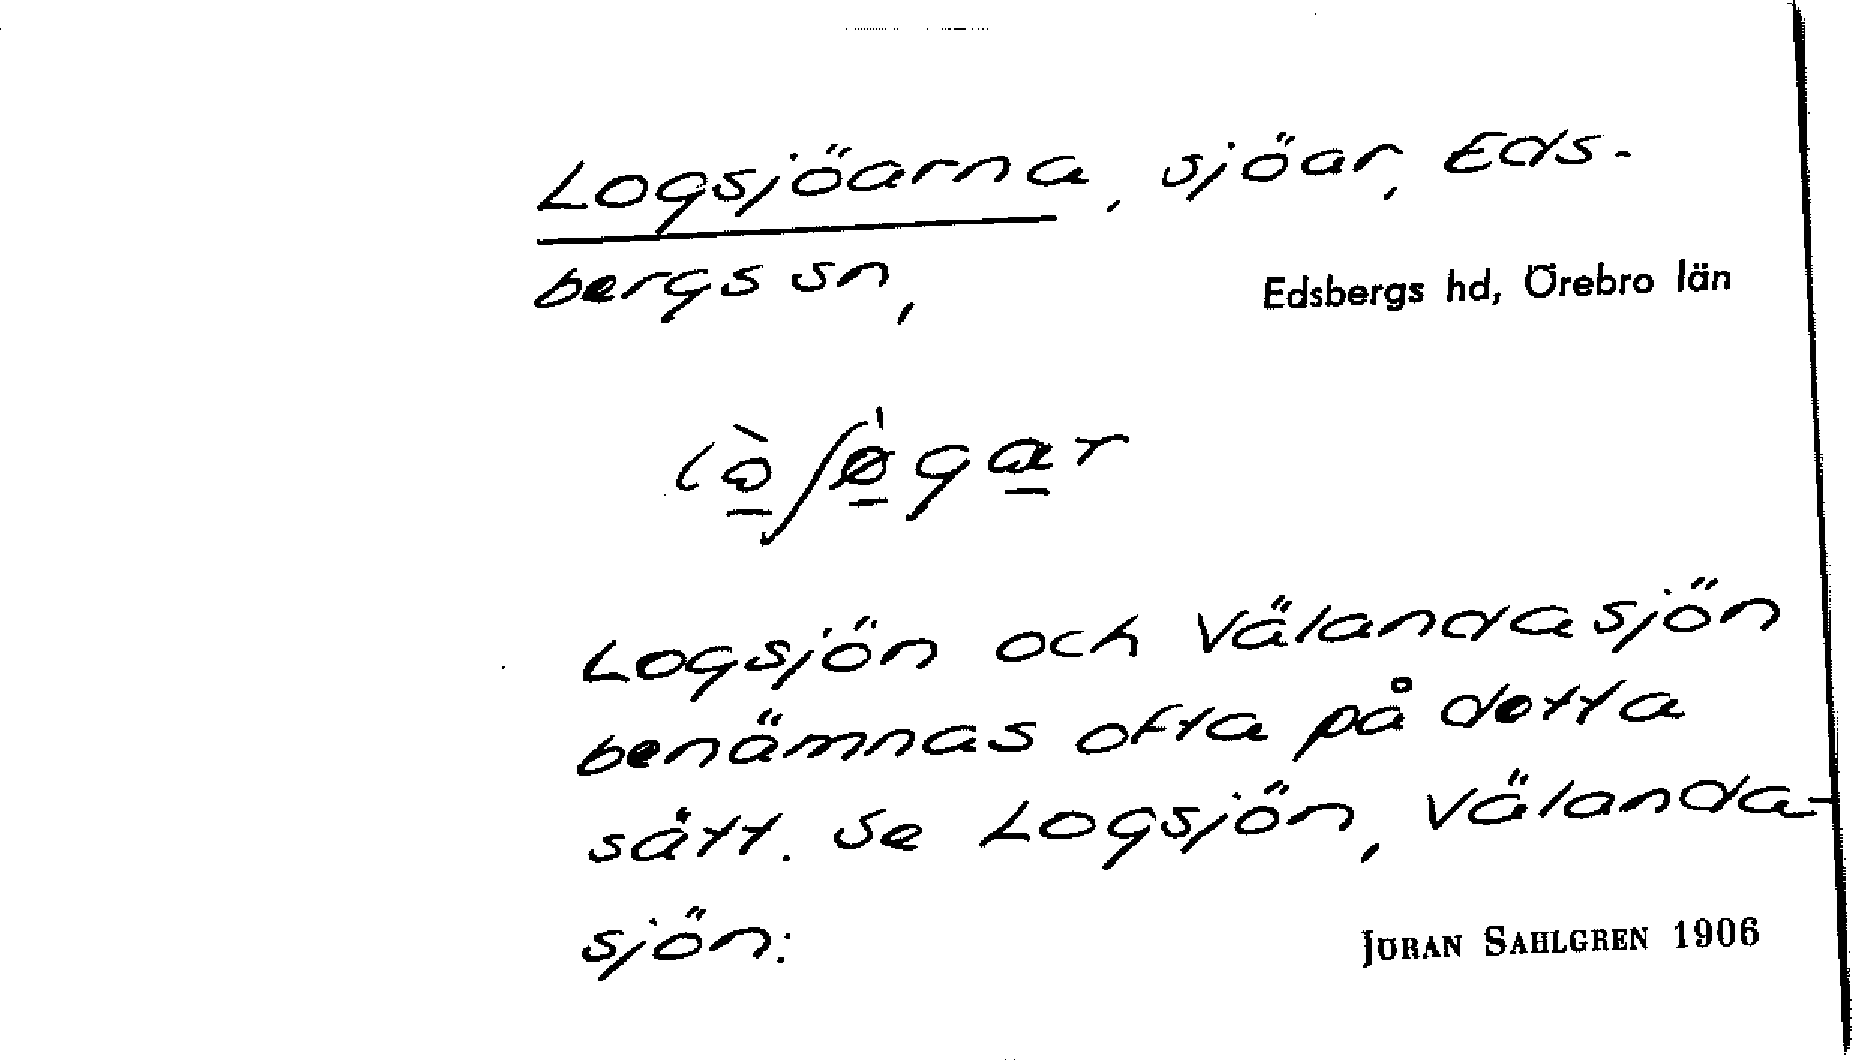 Logsjöarna, sjöar, Eds-
bergs sn, Edsbergs hd, Örebro län
Logsjön och Välandasjön
benämnas ofta på detta
sätt. Se Logsjön, Välanda-
sjön.
JÖRAN SAHLGREN 1906